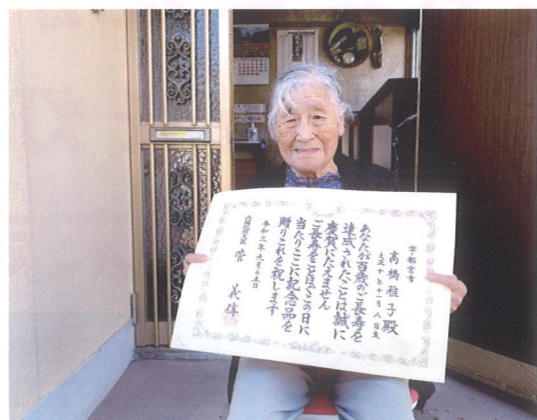 宇都宮市
高橋雅子殿
大正十年十一月八日生
あなたが百歳のご長寿を
達成されたことは誠に
慶賀にたえません
ご長寿をことほぐこの日に
当たりここに記念品を
贈りこれを祝します
令和三年九月十五日
内閣総理大臣 菅 義偉